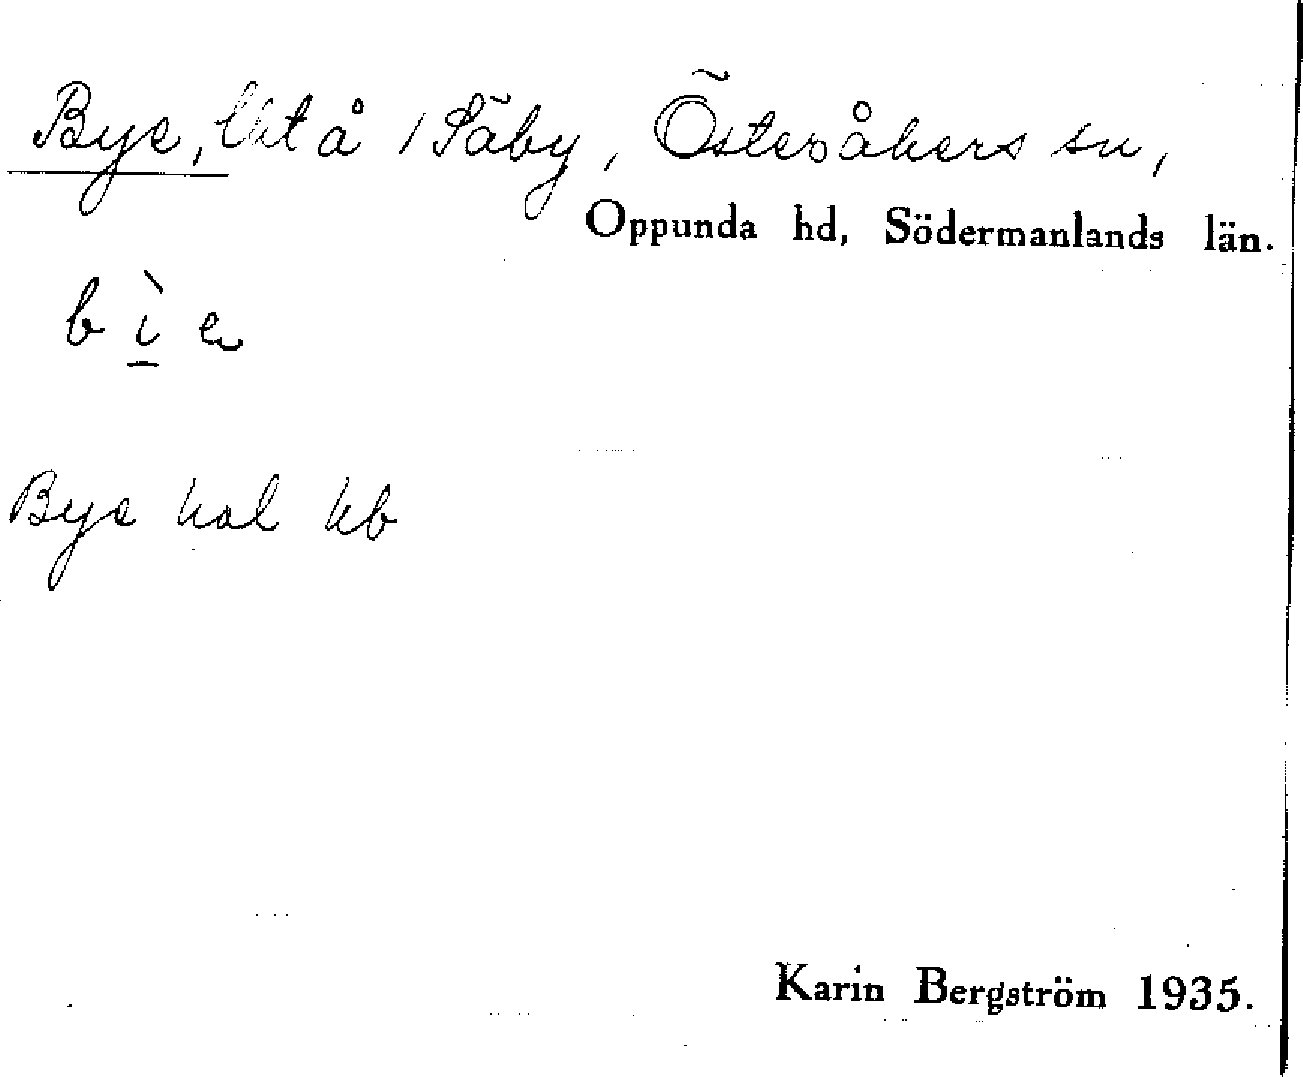 Bye, lht å / Säby, Österåkers sn,
Oppunda hd, Södermanlands län.
b ì e
Bye hol hb
Karin Bergström 1935.